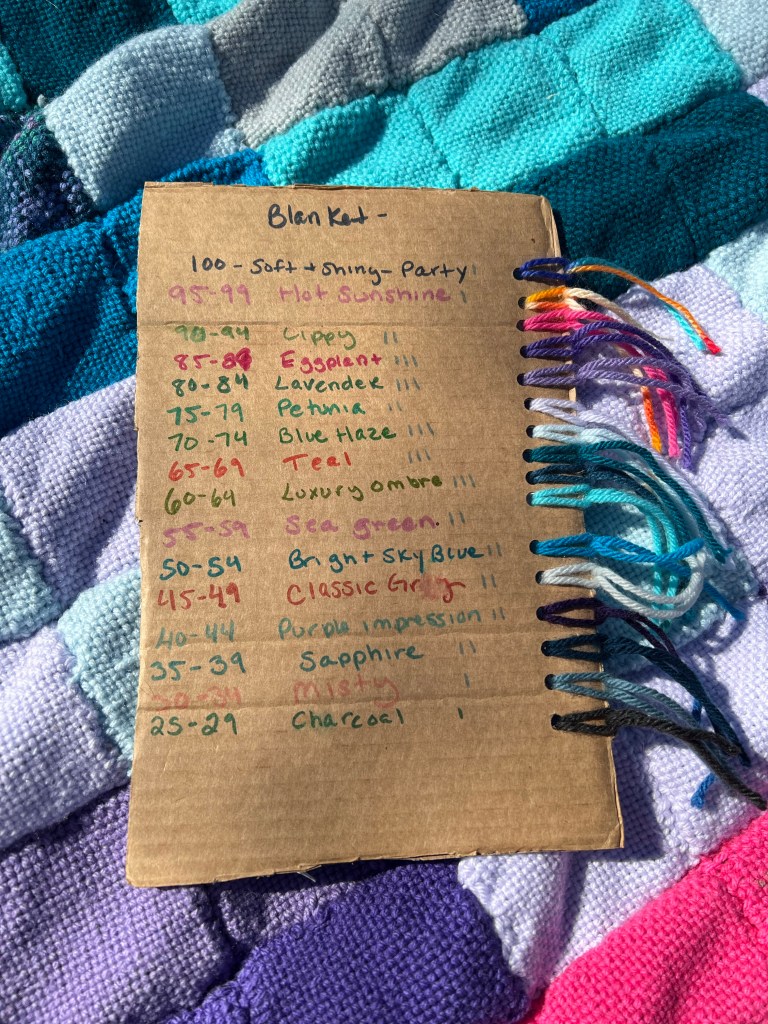 Blanket -
100 - Soft + Shiny - Party I
95-99 Hot Sunshine I
90-94 Lippy II
85-89 Eggplant III
80-84 Lavender III
75-79 Petunia II
70-74 Blue Haze III
65-69 Teal III
60-64 Luxury Ombre III
55-59 Sea green. II
50-54 Bright Sky Blue II
45-49 Classic Gray II
40-44 Purple impression II
35-39 Sapphire II
30-34 Misty I
25-29 Charcoal I